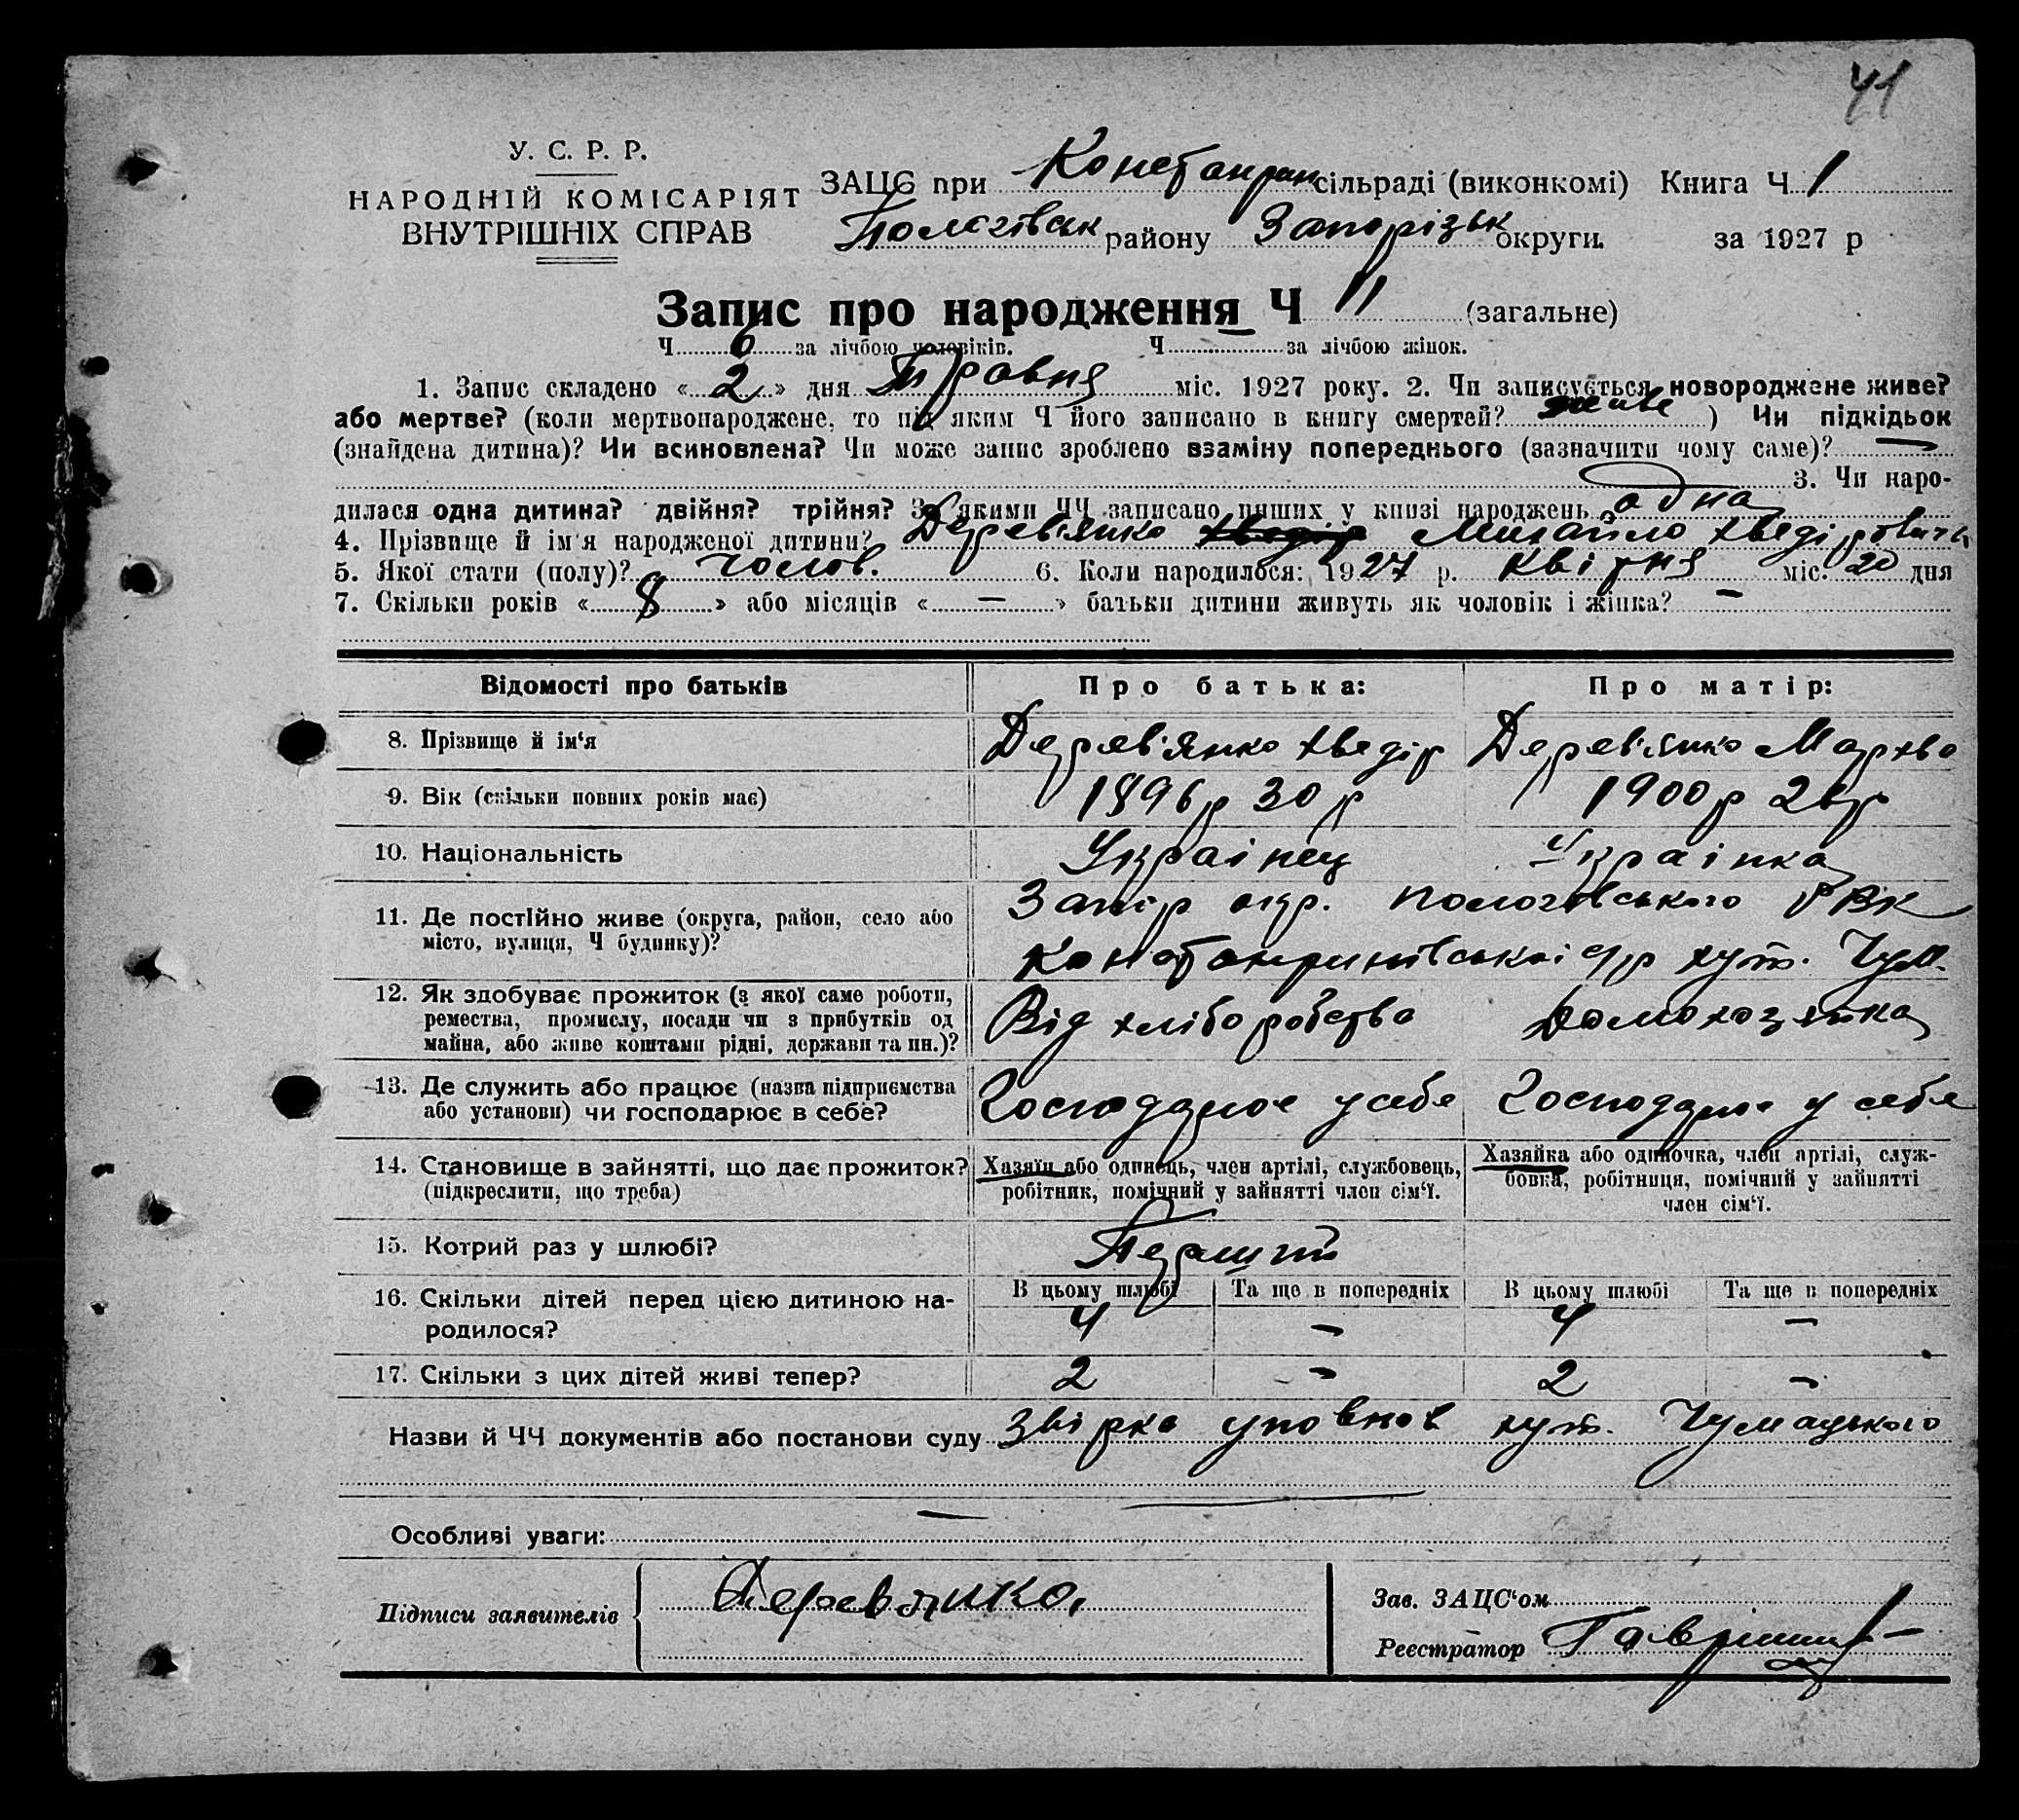 41
У. С. Р. Р.
НАРОДНІЙ КОМІСАРІЯТ
ВНУТРІШНІХ СПРАВ
ЗАЦС при Констанрин сільраді (виконкомі) Книга Ч 1
Пологівськ району Запорізьк округи. за 1927 р
Запис про народження Ч 11 (загальне)
Ч 6 за лічбою чоловіків. Ч — за лічбою жінок.
1. Запис складено « 2 » дня Травня міс. 1927 року. 2. Чи записується новороджене живе?
або мертве? (коли мертвонароджене, то під яким Ч його записано в книгу смертей? живе ) Чи підкідьок
(знайдена дитина)? Чи всиновлена? Чи може запис зроблено взаміну попереднього (зазначити чому саме)? —
3. Чи наро-
дилася одна дитина? двійня? трійня? За якими ЧЧ записано инших у книзі народжень одна
4. Прізвище й ім'я народженої дитини? Дерев'янко Хведір Михайло Хведірович
5. Якої стати (полу)? чолов. 6. Коли народилося: 1927 р. квітня міс. 20 дня
7. Скільки років « 8 » або місяців « — » батьки дитини живуть як чоловік і жінка? —
Відомості про батьків Про батька: Про матір:
8. Прізвище й ім'я Дерев'янко Хведір Дерев'янко Мархва
9. Вік (скільки повних років має) 1896р 30 р 1900р 26р
10. Національність Українець Українка
11. Де постійно живе (округа, район, село або місто, вулиця, Ч будинку)? Запор окр. Пологівського РВК
Констанринівської с/р хут. Чум.
12. Як здобуває прожиток (з якої саме роботи, ремества, промислу, посади чи з прибутків од майна, або живе коштами рідні, держави та ин.)? Від хліборобства Домохозяйка
13. Де служить або працює (назва підприємства або установи) чи господарює в себе? Господарює у себе Господарює у себе
14. Становище в зайнятті, що дає прожиток? (підкреслити, що треба) Хазяїн або одинець, член артілі, службовець, робітник, помічний у зайнятті член сім'ї. Хазяйка або одиночка, член артілі, служ-
бовка, робітниця, помічний у зайнятті
член сім'ї.
15. Котрий раз у шлюбі? Перший
16. Скільки дітей перед цією дитиною на-
родилося? В цьому шлюбі Та ще в попередніх В цьому шлюбі Та ще в попередніх
4 — 4 —
17. Скільки з цих дітей живі тепер? 2 — 2 —
Назви й ЧЧ документів або постанови суду Звірка уповнов хут. Чумацького
Особливі уваги:
Підписи заявителів Деревянко,
Зав. ЗАЦС'ом
Реєстратор